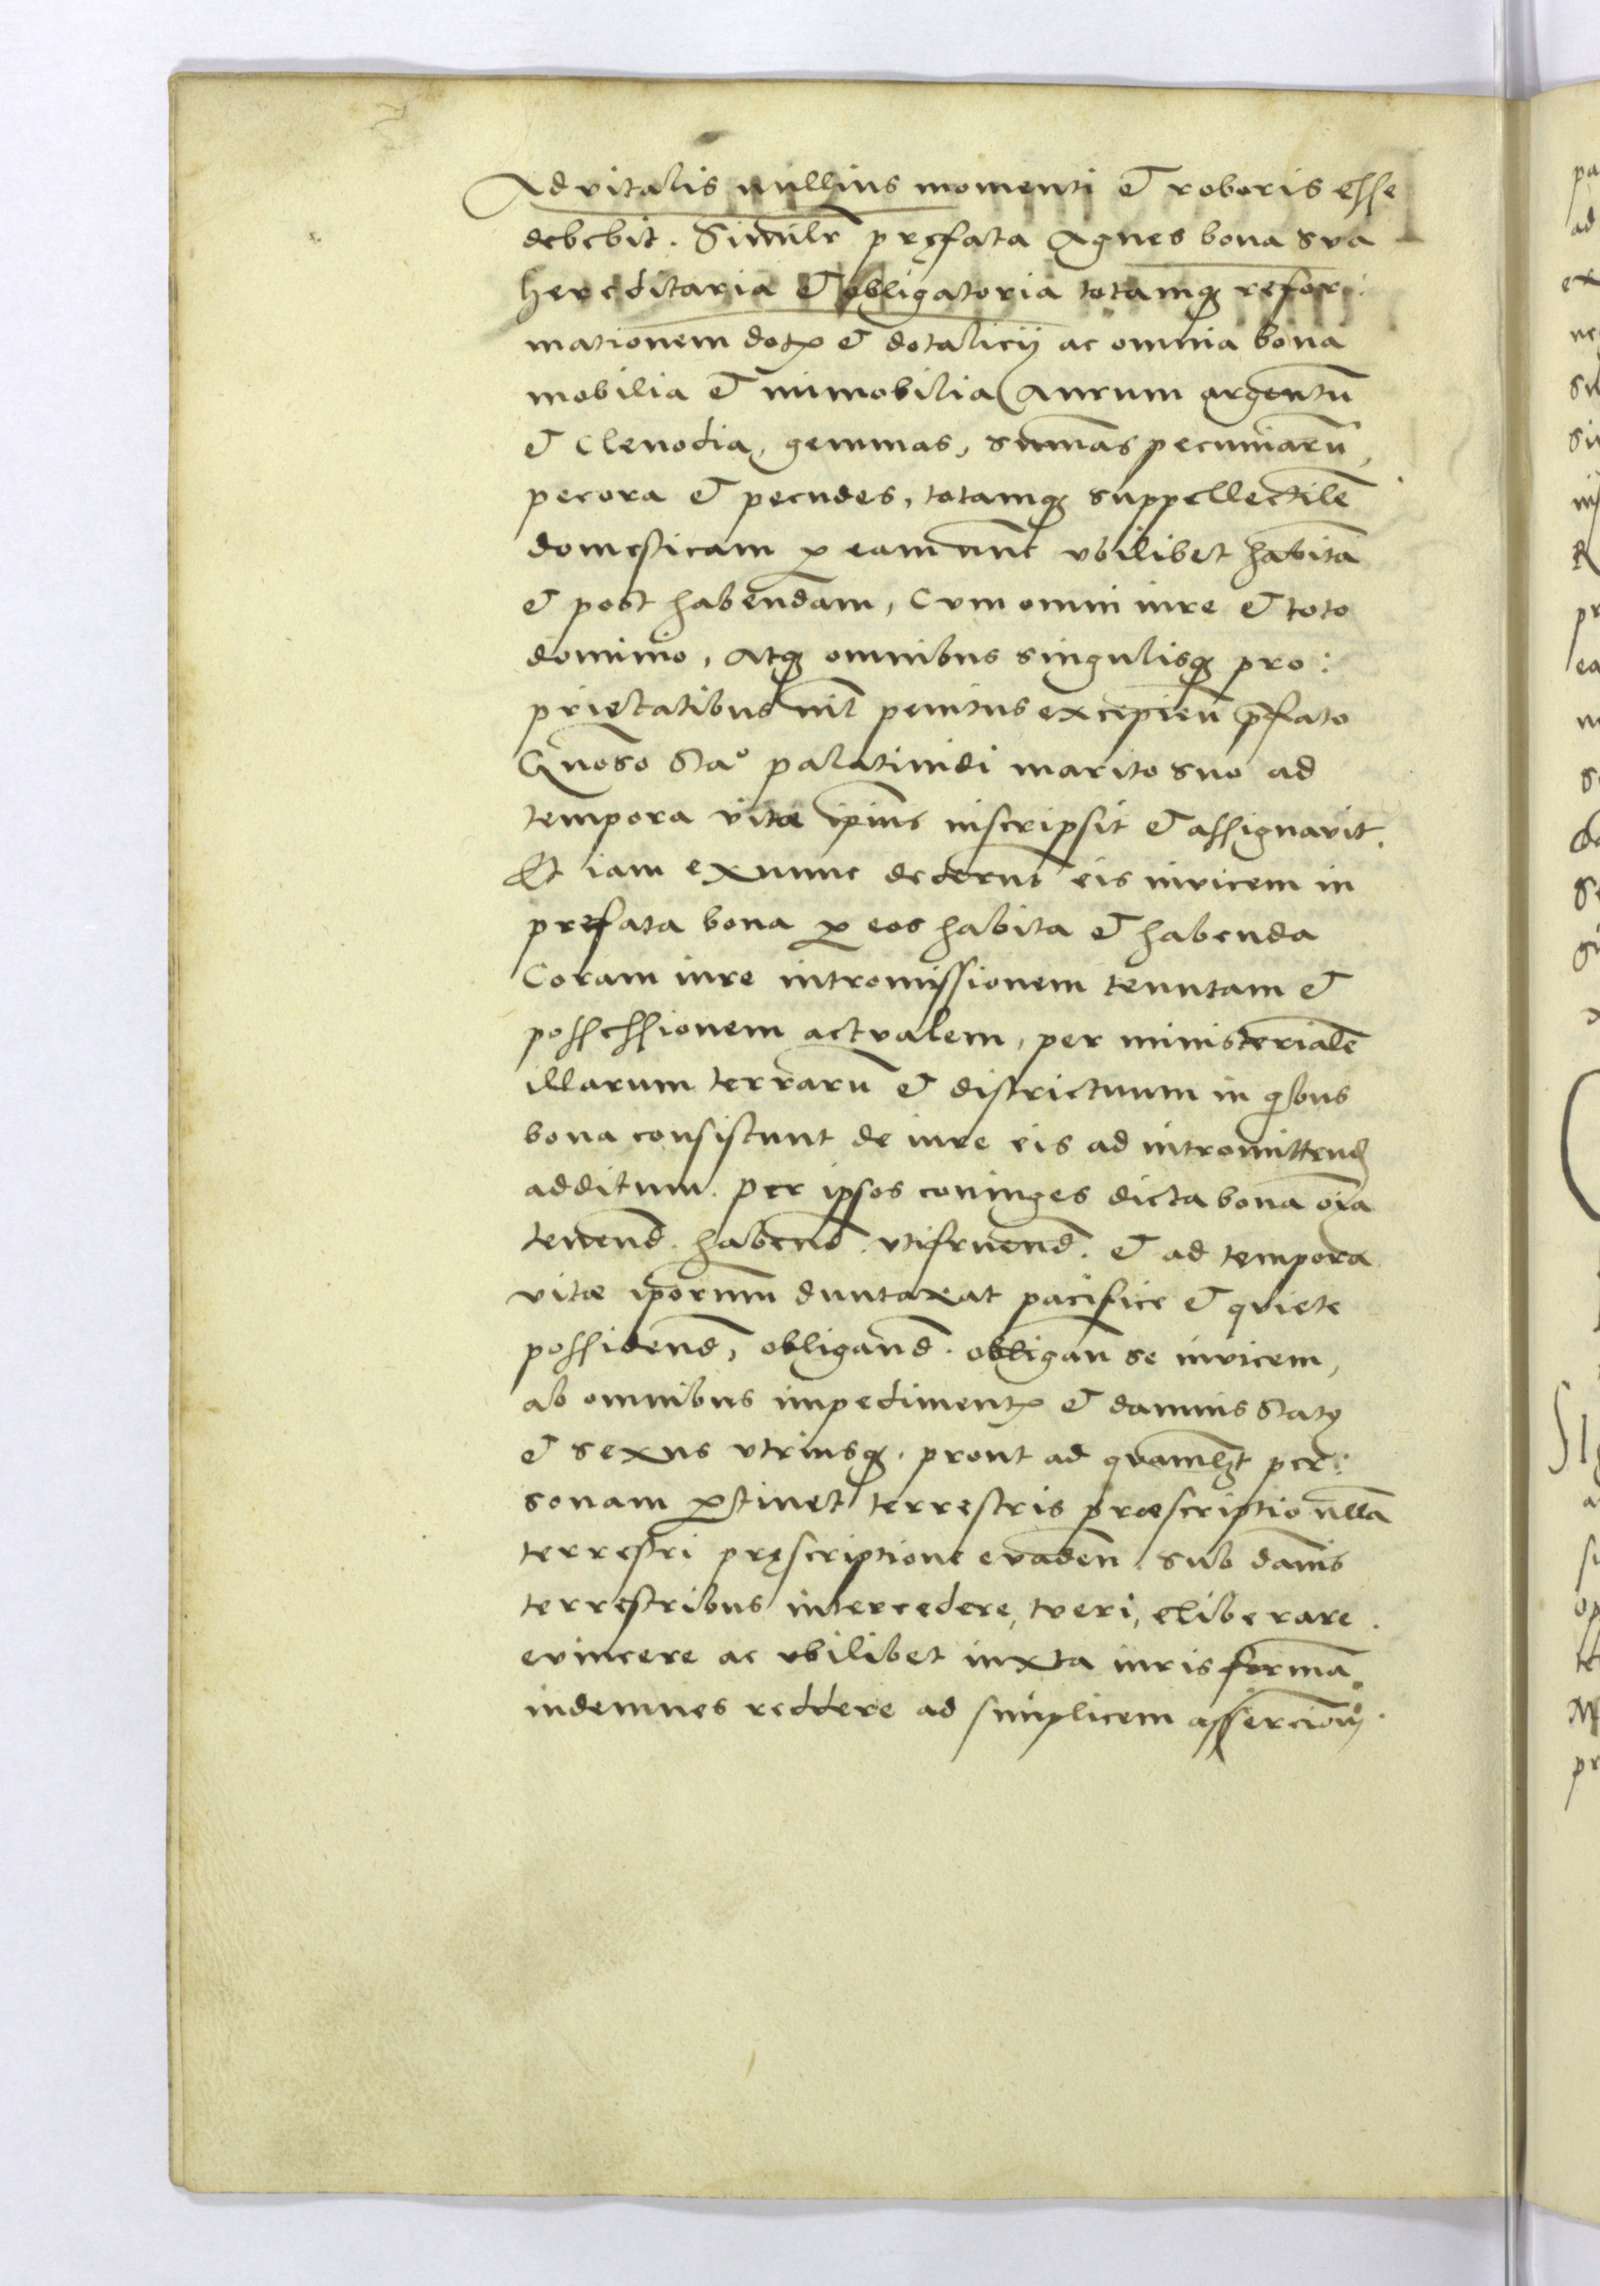 Advitalis nullius momenti et roboris esse
debebit. Similr̄ pręfata Agnes bona sva
hereditaria et obligatoria totamq̨ refor:
mationem dotꝭ et dotalicij ac omnia bona
mobilia et immobilia Aurum argentū
et Clenodia, gemmas, sum̄as pecuniarū,
pecora et pecudes, totamq̨ suppellectilē
domesticam ꝑ eam nūc vbilibet habitā
et post habendam, Cum omni iure et toto
dominio, Atq̨ omnibus singulisq̨ pro:
prietatibus nil̄ penitus excepien̄ p̄fato
Gn̄oso Sta° palatinidi marito suo ad
tempora vitæ ip̄ius inscripsit et assignavit.
Et iam exnunc dederūt eis invicem in
prefata bona ꝑ eos habita et habenda
Coram iure intromissionem tenutam et
possessionem actvalem, per ministerialē
illarum terrarū et districtuum in q̄bus
bona consistunt de iure eis ad intromittend̄
additum. per ipsos coniuges dicta bona oīa
tenend̄. habend̄. vtifruend̄. et ad tempora
vitæ ip̄orum duntaxat pacifice et quiete
possidend̄, obligand̄. obligan̄ se invicem,
ab omnibus impedimentꝭ et damnis Statꝯ
et sexus vtriusq̨. prout ad qvamlꝫt per:
sonam ꝑtinet terrestris præscriptio nullā
terrestri pręscriptione evaden̄ sub dam̄is
terrestribus intercedere, tveri, eliberare.
evincere ac vbilibet iuxta iuris formā
indemnes reddere ad simplicem assercionē